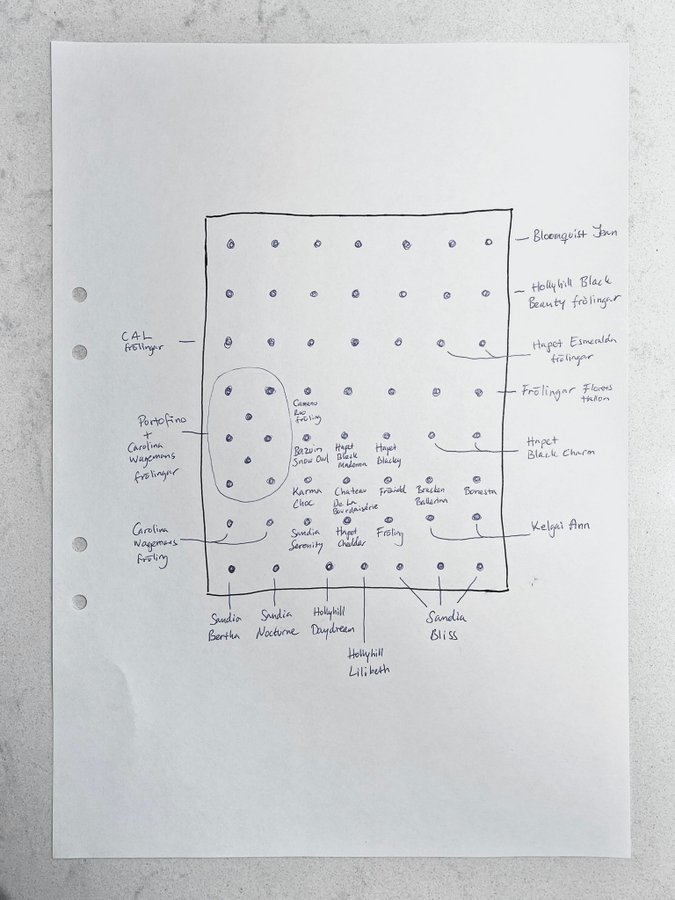 Bloomquist Jean
Hollyhill Black
Beauty frölingar
CAL
frölingar
Hapet Esmeralda
frölingar
Frölingar Florens
Hallon
Cameno
Rio
fröling
Portofino
+
Carolina
Wagemans
frölingar
Bazuin
Snow Owl
Hapet
Black
Madonna
Hapet
Blacky
Hapet
Black Charm
Karma
Choc
Chateau
De La
Bourdaisière
Bracken
Ballerina
Bonesta
Carolina
Wagemans
fröling
Sandia
Serenity
Hapet
Cheddar
Fröling
Kelgai Ann
Sandia
Bertha
Sandia
Nocturne
Hollyhill
Daydream
Hollyhill
Lilibeth
Sandia
Bliss